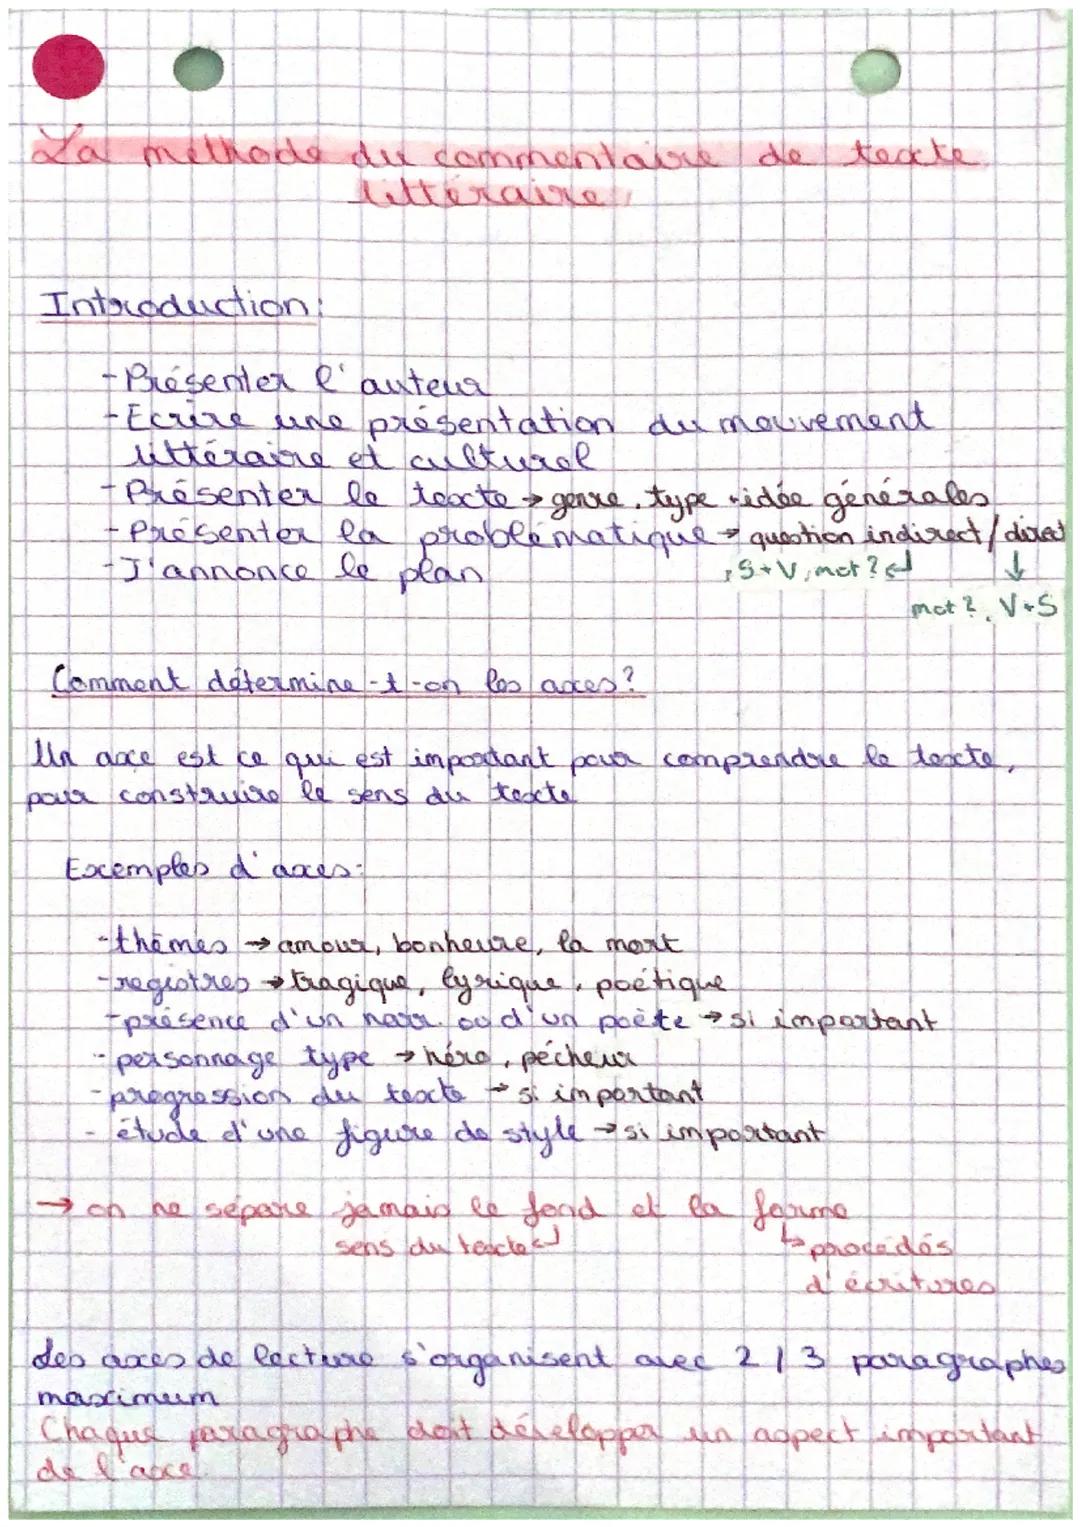 La méthode du commentaire de texte
littéraire
Introduction:
- Présenter l'auteur
- Ecrire une présentation du mouvement
littéraire et culturel
- Présenter le texte → genre, type + idée générales
- Présenter la problématique → question indirect/direct
- J'annonce le plan , S+V, mot ? ↲ ↓
mot ?, V+S
Comment détermine-t-on les axes ?
Un axe est ce qui est important pour comprendre le texte,
pour construire le sens du texte
Exemples d'axes:
- thèmes → amour, bonheure, la mort
- registres → tragique, lyrique, poétique
- présence d'un narr. ou d'un poète → si important
- personnage type → héro, pécheur
- progression du texte → si important
- étude d'une figure de style → si important
→ on ne sépare jamais le fond et la forme
sens du texte ↲ ↳ procédés
d'écritures
Les axes de lecture s'organisent avec 2/3 paragraphes
maximum
Chaque paragraphe doit développer un aspect important
de l'axe.